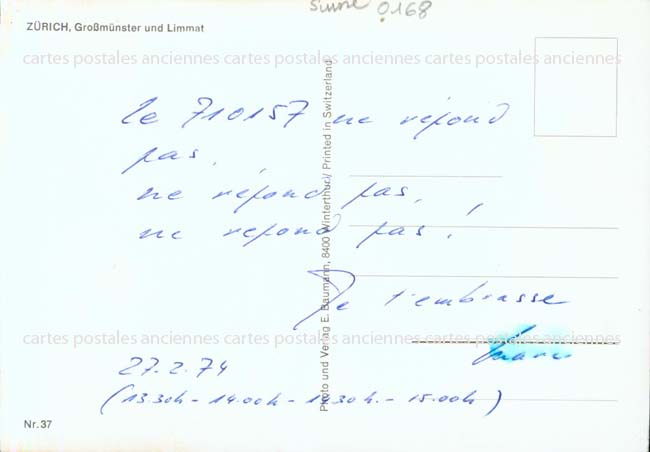 Suisse 0168
ZÜRICH, Großmünster und Limmat
cartes postales anciennes cartes postales anciennes
le 710157 ne répond
pas,
ne répond pas,
ne répond pas!
Je t'embrasse
cartes postales anciennes cartes postales anciennes
27.2.74
(13.30h - 14.00h - 14.30h. - 15.00h)
Nr. 37
Photo und Verlag E. Baumann, 8400 Winterthur / Printed in Switzerland